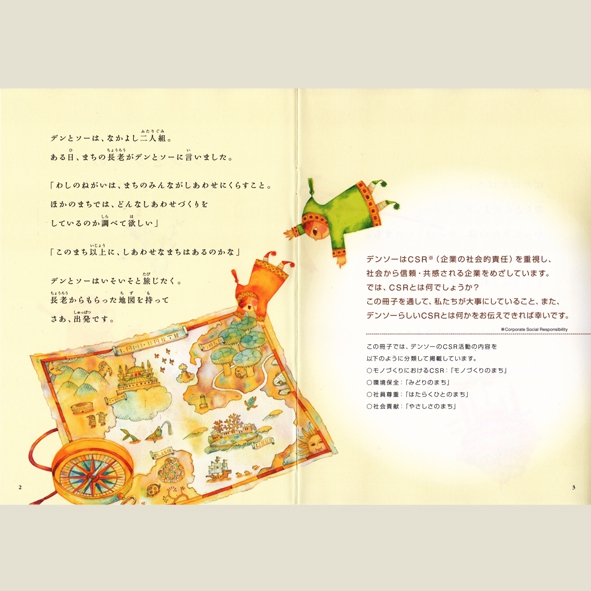 デンとソーは、なかよし二人組。
ある日、まちの長老がデンとソーに言いました。
「わしのねがいは、まちのみんながしあわせにくらすこと。
ほかのまちでは、どんなしあわせづくりを
しているのか調べて欲しい」
「このまち以上に、しあわせなまちはあるのかな」
デンとソーはいそいそと旅じたく。
長老からもらった地図を持って
さあ、出発です。
2
デンソーはCSR※（企業の社会的責任）を重視し、
社会から信頼・共感される企業をめざしています。
では、CSRとは何でしょうか？
この冊子を通して、私たちが大事にしていること、また、
デンソーらしいCSRとは何かをお伝えできれば幸いです。
※Corporate Social Responsibility
この冊子では、デンソーのCSR活動の内容を
以下のように分類して掲載しています。
○モノづくりにおけるCSR：「モノづくりのまち」
○環境保全：「みどりのまち」
○社員尊重：「はたらくひとのまち」
○社会貢献：「やさしさのまち」
3